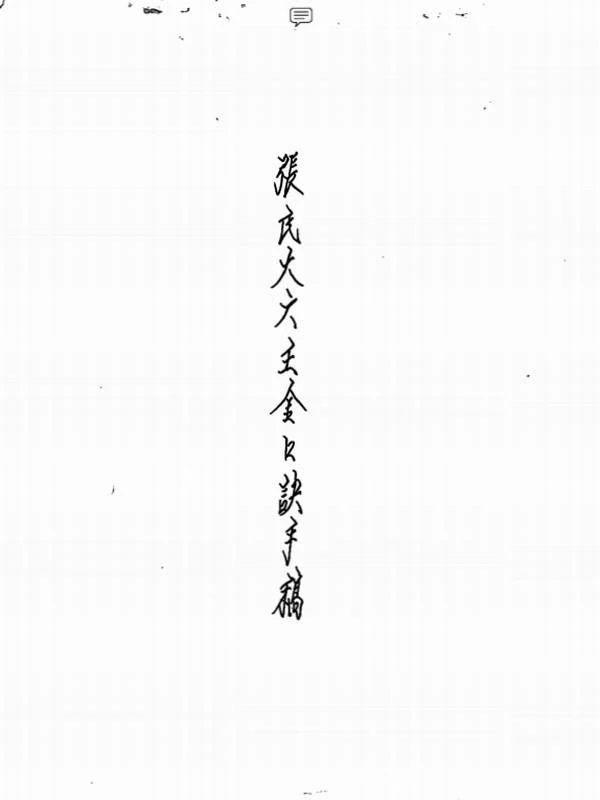 張氏大六壬金口訣手稿